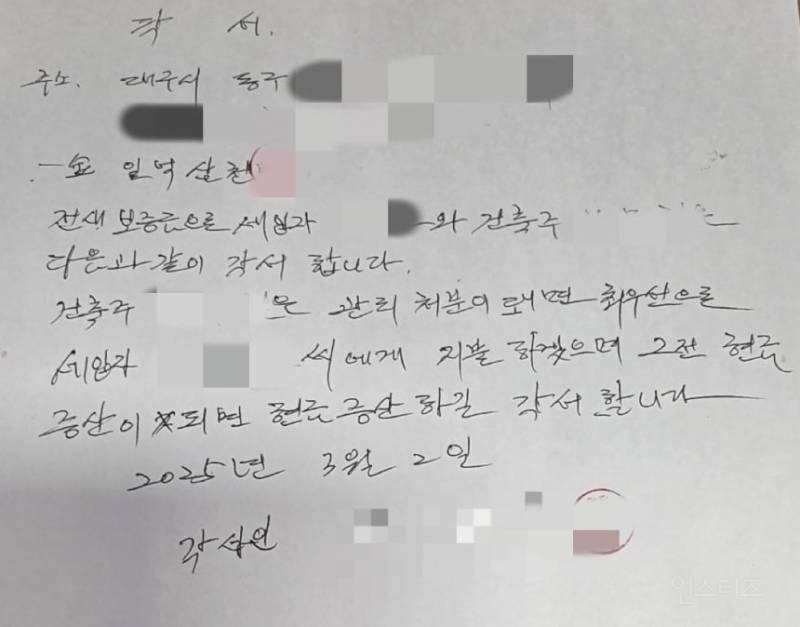 각 서.
주소. 대구시 동구
一金 일억삼천
전세 보증금으로 세입자 와 건축주 는
다음과 같이 각서 합니다.
건축주 은 관리 처분이 돼면 최우선으로
세입자 씨에게 지불 하겠으며 그전 현금
증산이 되면 현금 증산 하길 각서 합니다
2025년 3월 2일
각서인
인스티즈